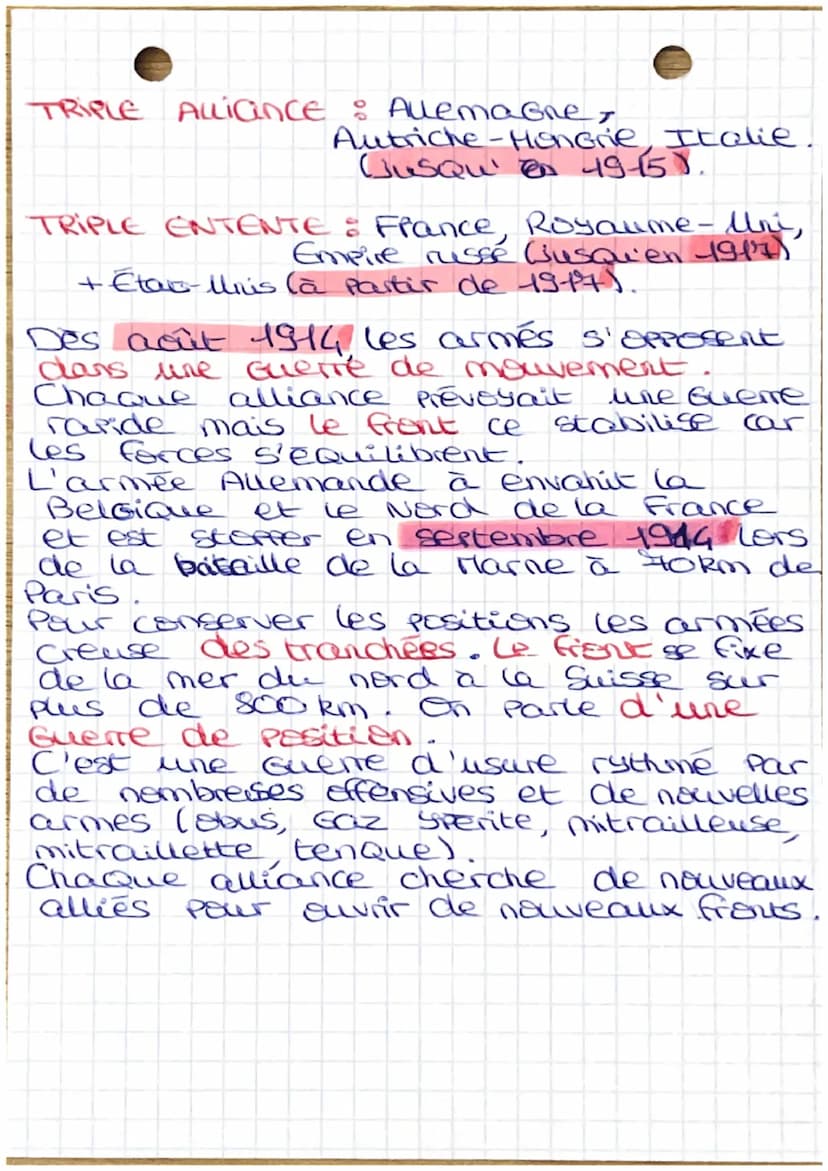 TRIPLE ALLIANCE : Allemagne,
Autriche-Hongrie, Italie.
(Jusqu'en 1915).
TRIPLE ENTENTE : France, Royaume-Uni,
Empire russe (jusqu'en 1917)
+ États-Unis (à partir de 1917).
Dès août 1914, les armés s'opposent
dans une guerre de mouvement.
Chaque alliance prévoyait une guerre
rapide mais le front ce stabilise car
les forces s'équilibrent.
L'armée Allemande à envahit la
Belgique et le Nord de la France
et est stopper en septembre 1914 lors
de la bataille de la Marne à 70km de
Paris.
Pour conserver les positions les armées
creuse des tranchées. Le front se fixe
de la mer du nord à la Suisse sur
plus de 800 km. On parle d'une
guerre de position.
C'est une guerre d'usure rythmé par
de nombreuses offensives et de nouvelles
armes (obus, gaz yperite, mitrailleuse,
mitraillette, tenque).
Chaque alliance cherche de nouveaux
alliés pour ouvrir de nouveaux fronts.